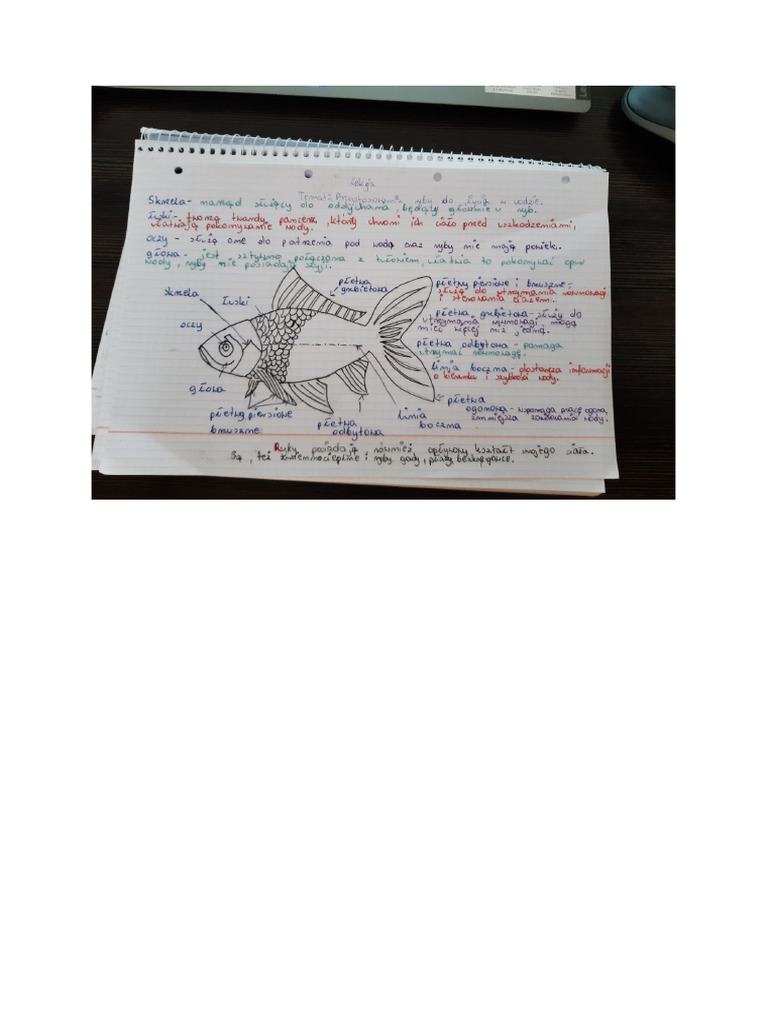 Lekcja
Temat: Przystosowania ryby do życia w wodzie.
Skrzela - narząd służący do oddychania, będący głównie u ryb.
Łuski - tworzą twardy pancerz, który chroni ich ciało przed uszkodzeniami,
ułatwiają pokonywanie wody.
oczy - służą one do patrzenia pod wodą oraz ryby nie mają powiek.
głowa - jest sztywno połączona z tułowiem, ułatwia to pokonywać opór
wody, ryby nie posiadają szyji.
skrzela
łuski
oczy
głowa
płetwa
grzbietowa
płetwy piersiowe
brzuszne
płetwa
odbytowa
linia
boczna
płetwy piersiowe i brzuszne -
służą do utrzymania równowagi
i sterowania ciałem.
płetwa grzbietowa - służy do
utrzymania równowagi mogą
mieć więcej niż jedną.
płetwa odbytowa - pomaga
utrzymać równowagę.
linia boczna - dostarcza informacji
o kierunku i szybkości wody.
płetwa
ogonowa - wspomaga pracę ogona,
zmniejsza zawirowania wody.
Ryby posiadają również opływowy kształt swojego ciała.
Są też zmiennocieplne: ryby gady, płazy, bezkręgowce.